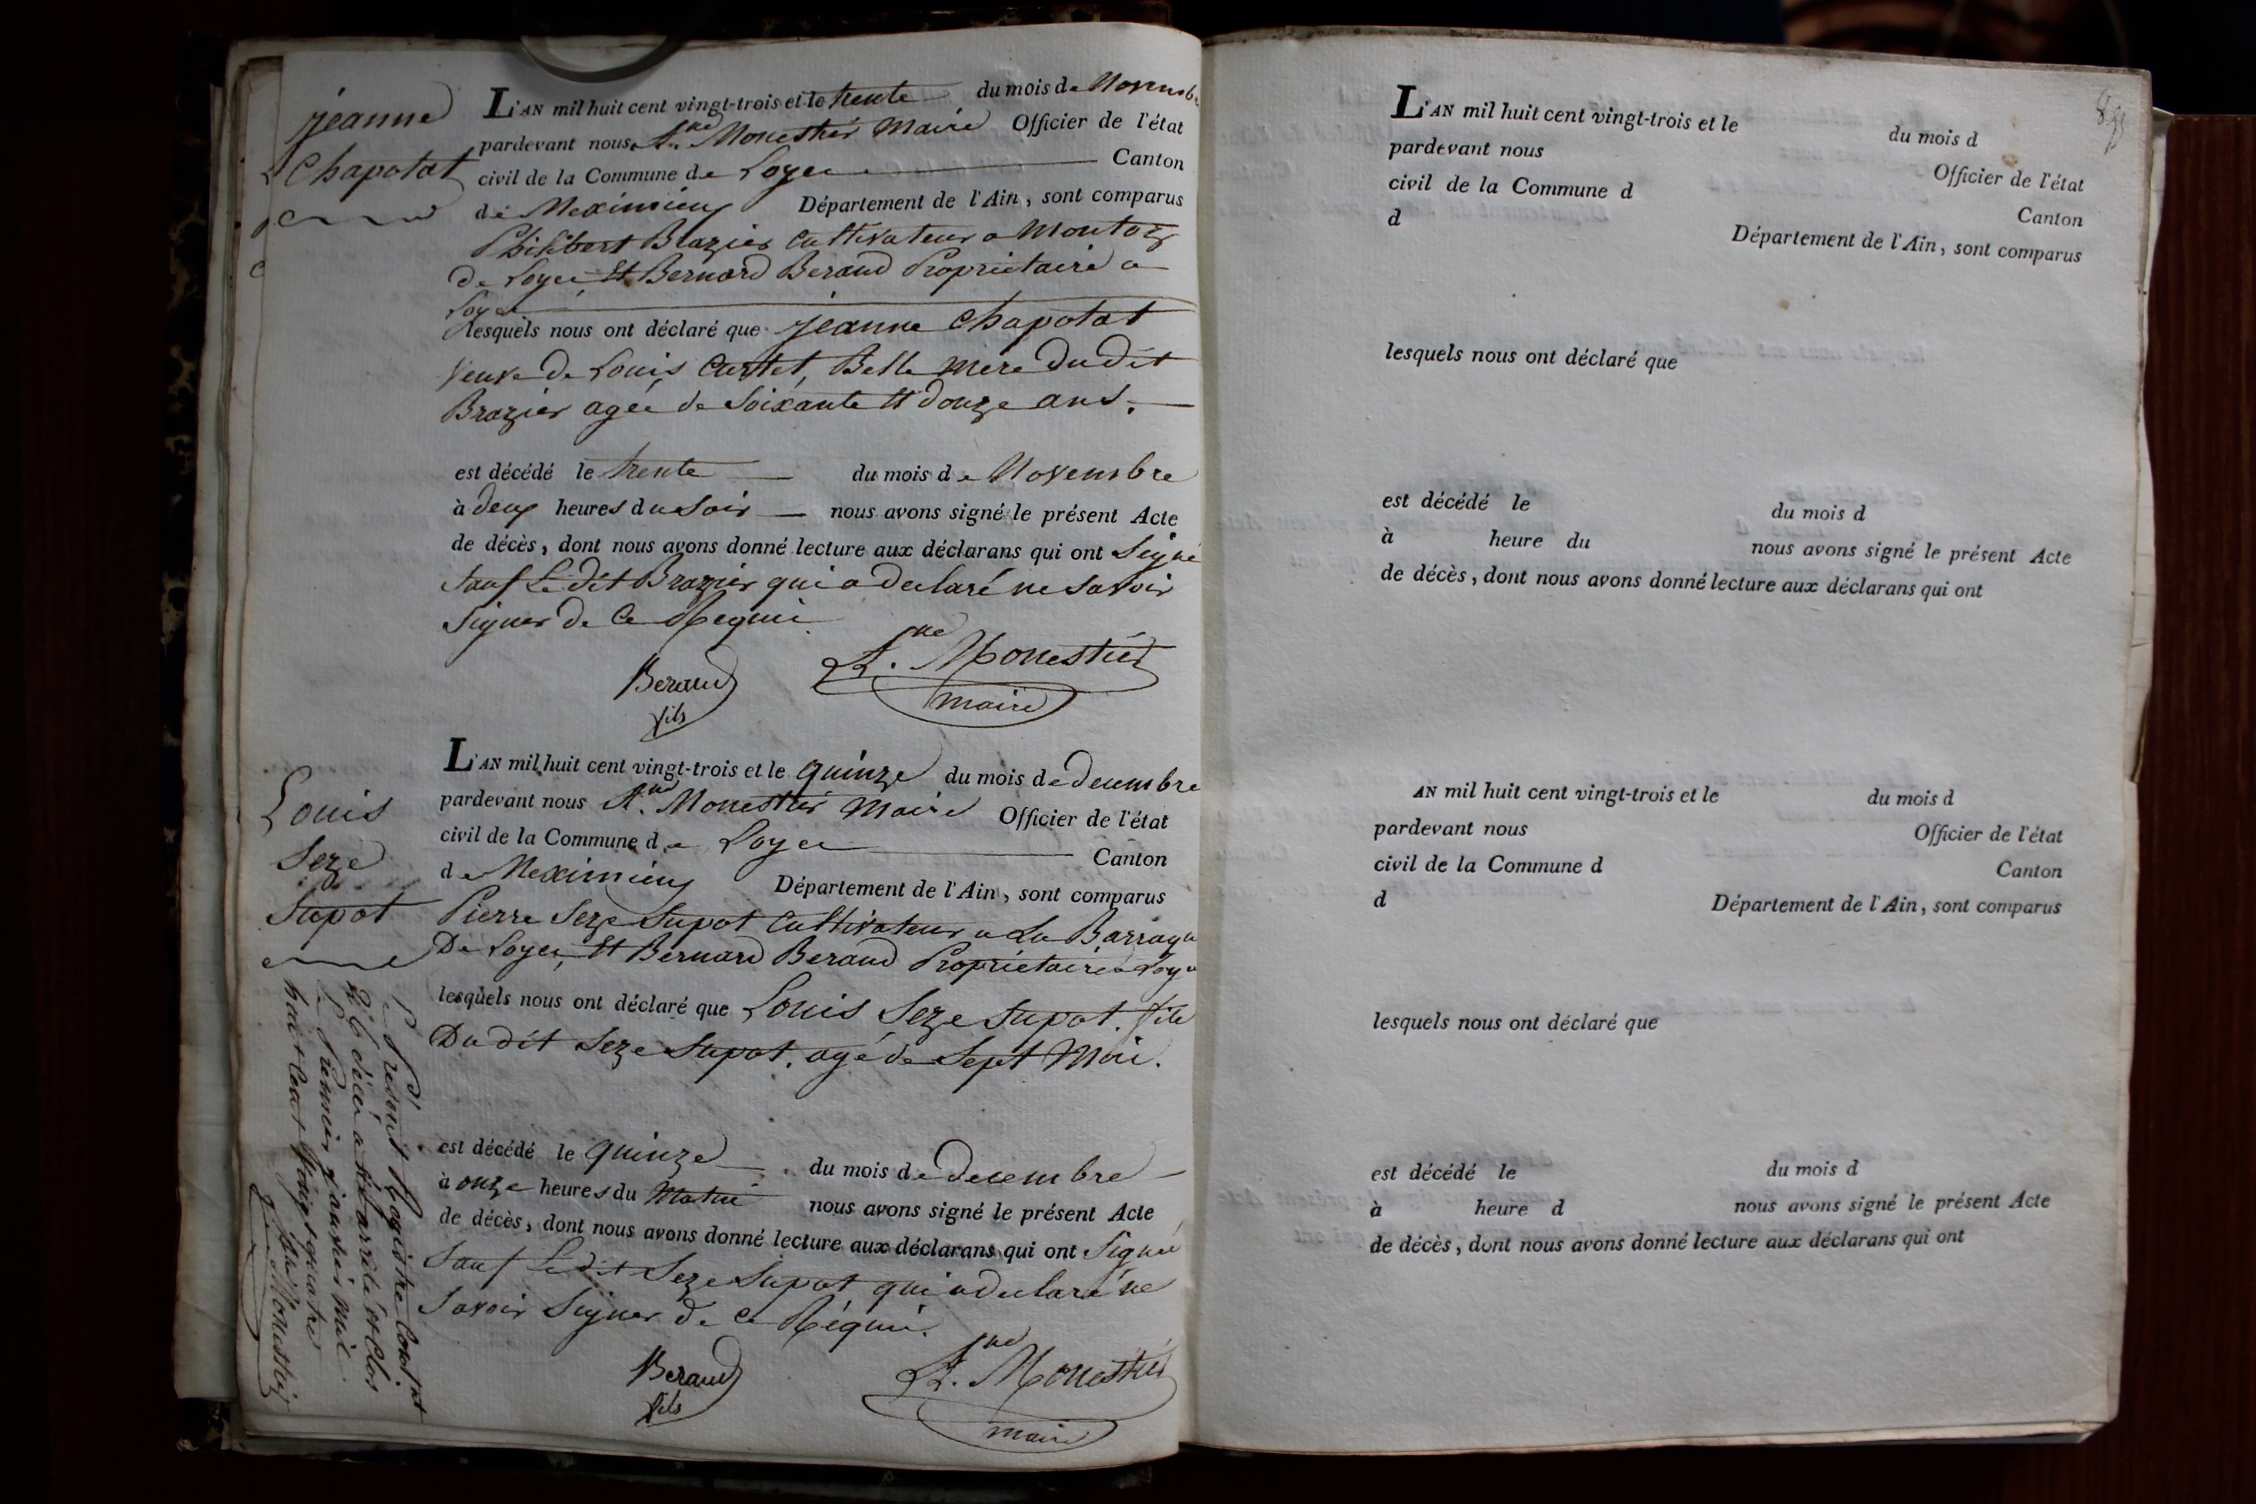 jeanne
Chapotat
L'AN mil huit cent vingt-trois et le trente du mois de Novembre
pardevant nous Ane Monestier Maire Officier de l'état
civil de la Commune de Loyes Canton
de Meximieux Département de l'Ain, sont comparus
Philibert Brazier cultivateur a Montoz
de Loyes Et Bernard Beraud Propriétaire a
Loyes
lesquels nous ont déclaré que jeanne Chapotat
Veuve de Louis Curtet, Belle mere du dit
Brazier agée de Soixante et douze ans.
est décédé le trente du mois de Novembre
à deux heures du Soir nous avons signé le présent Acte
de décès, dont nous avons donné lecture aux déclarans qui ont Signé
Sauf Le dit Brazier qui a declaré ne savoir
Signer de ce Requis
Beraud fils
Ane Monestier
maire
Louis
Seze
Supot
L'AN mil huit cent vingt-trois et le quinze du mois de decembre
pardevant nous Ane Monestier Maire Officier de l'état
civil de la Commune de Loyes Canton
de Meximieux Département de l'Ain, sont comparus
Pierre Seze Supot Cultivateur a La Barray
De Loyes, Et Bernard Beraud Propriétaire a Loyes
lesquels nous ont déclaré que Louis Seze Supot, fils
Du dit Seze Supot, agé de Sept Moi.
est décédé le quinze du mois de decembre
à onze heures du Matin nous avons signé le présent Acte
de décès, dont nous avons donné lecture aux déclarans qui ont Signé
Sauf Le dit Seze Supot qui a declaré ne
Savoir Signer de ce Réquis.
Beraud fils
Ane Monestier
maire
Le Présent Registre
décès a été arrêté et Clos
le Premier janvier mil
huit Cent Vingt quatre
Monestier
L'AN mil huit cent vingt-trois et le du mois d
pardevant nous Officier de l'état
civil de la Commune d Canton
d Département de l'Ain, sont comparus
lesquels nous ont déclaré que
est décédé le du mois d
à heure du nous avons signé le présent Acte
de décès, dont nous avons donné lecture aux déclarans qui ont
AN mil huit cent vingt-trois et le du mois d
pardevant nous Officier de l'état
civil de la Commune d Canton
d Département de l'Ain, sont comparus
lesquels nous ont déclaré que
est décédé le du mois d
à heure d nous avons signé le présent Acte
de décès, dont nous avons donné lecture aux déclarans qui ont